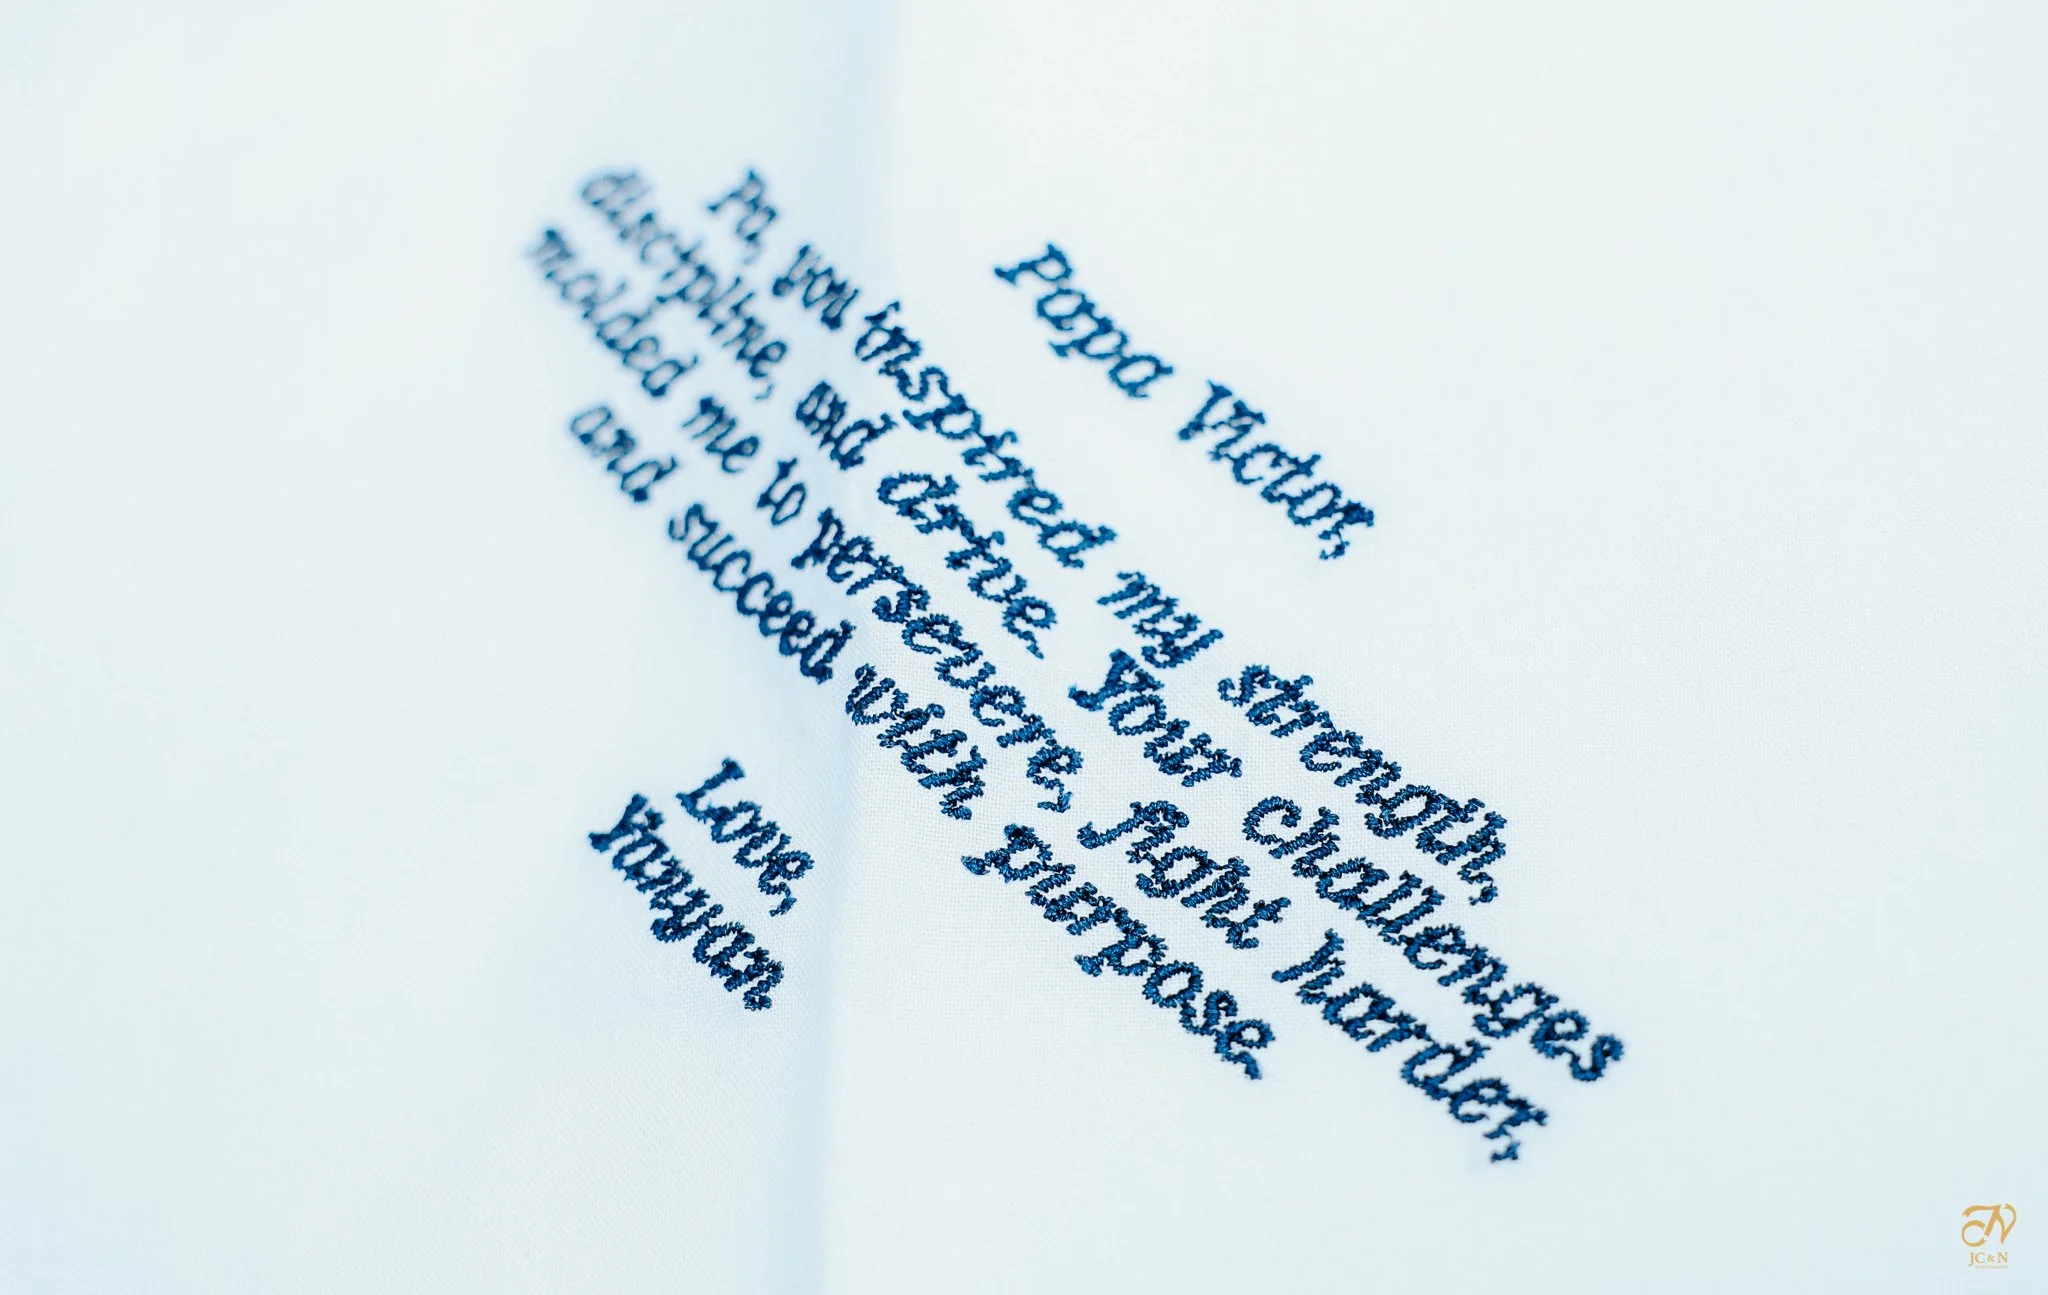 Papa Victor,
Pa, you inspired my strength,
discipline, and drive. Your challenges
molded me to persevere, fight harder,
and succeed with purpose.
Love,
Yanyan
JC & N